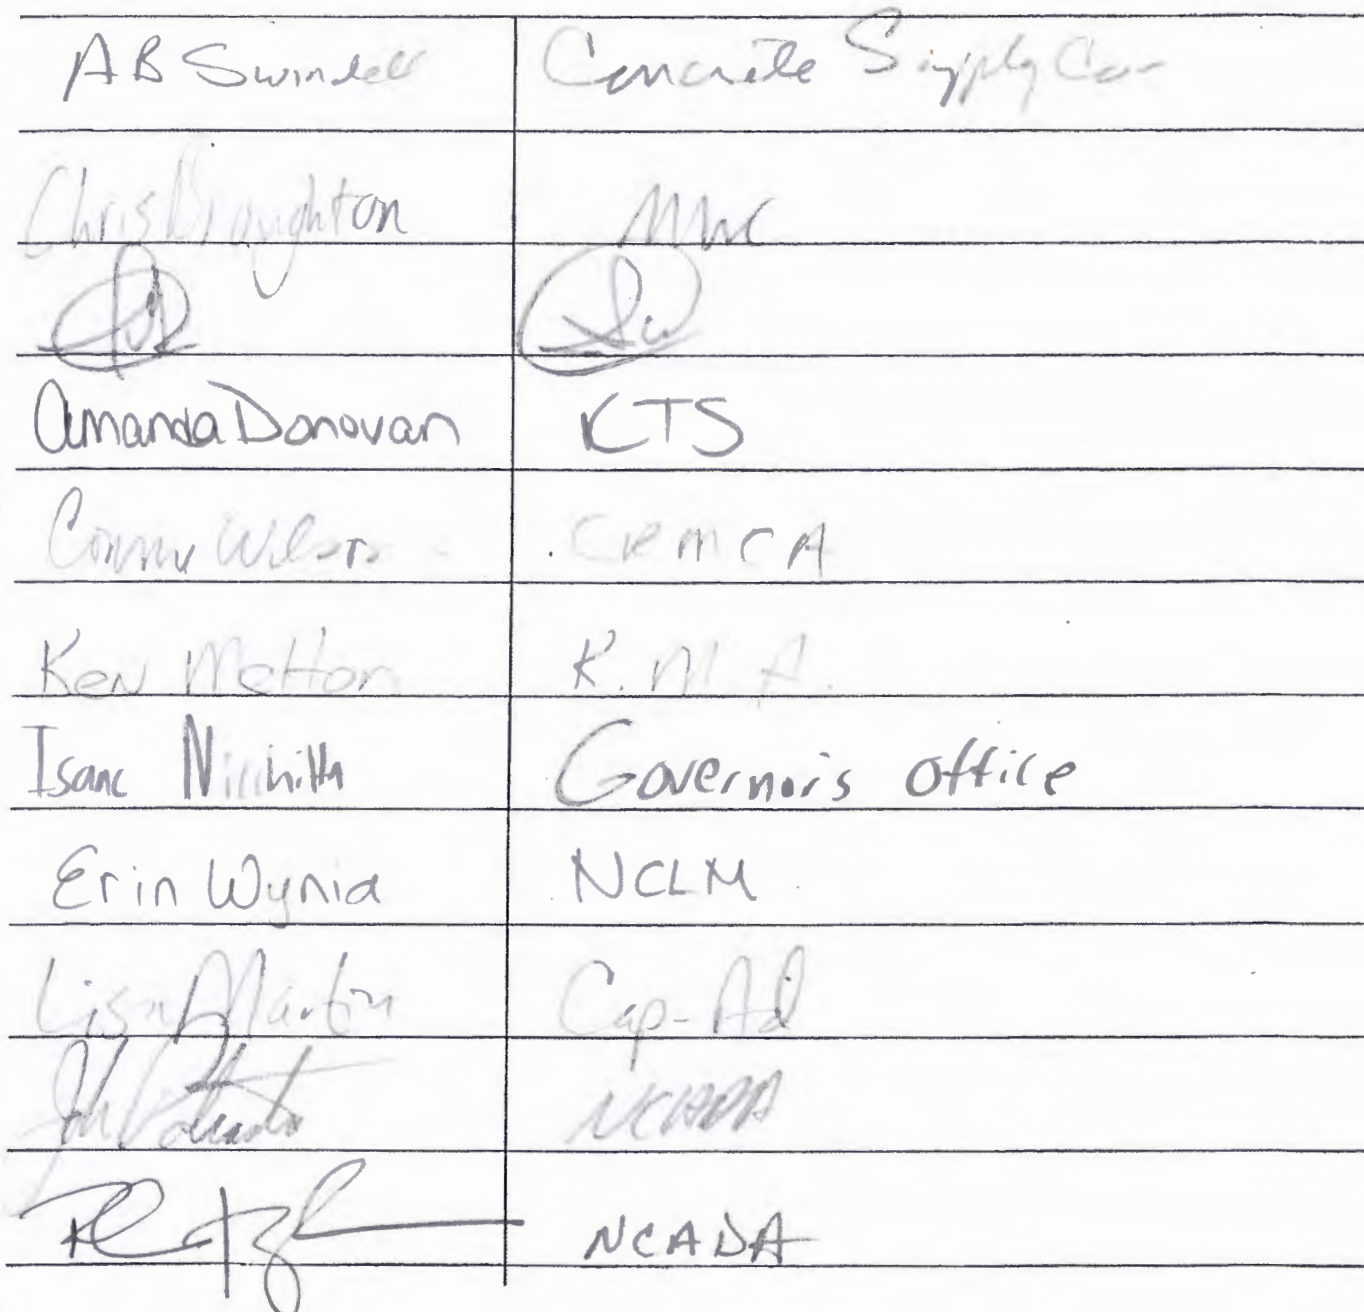 AB Swindell Concrete Supply Co
Chris Broughton MWC
Amanda Donovan KTS
Connie Wilson CRMCA
Ken Melton K.M.A.
Isaac Nicchitta Governor's Office
Erin Wynia NCLM
Lisa Martin Cap-Ad
NCADA
NCADA